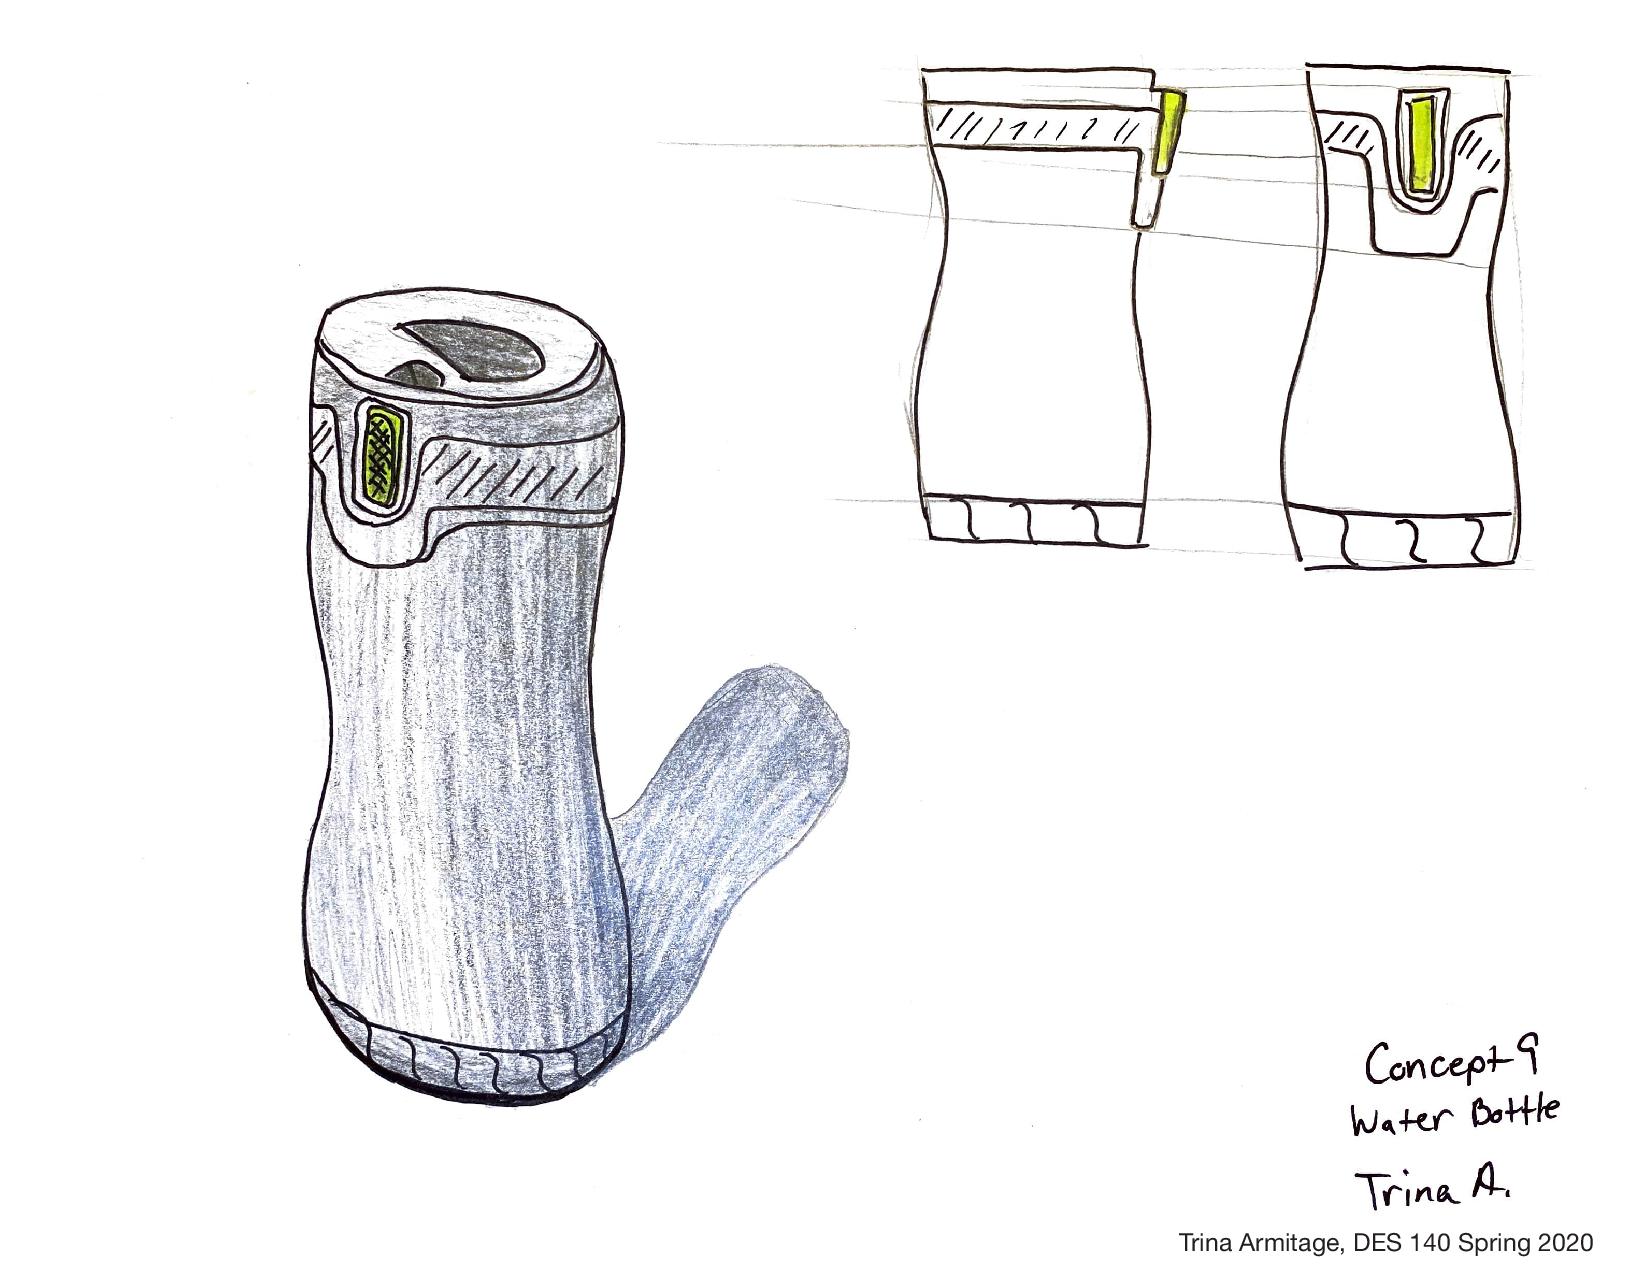 Concept 9
Water Bottle
Trina A.
Trina Armitage, DES 140 Spring 2020